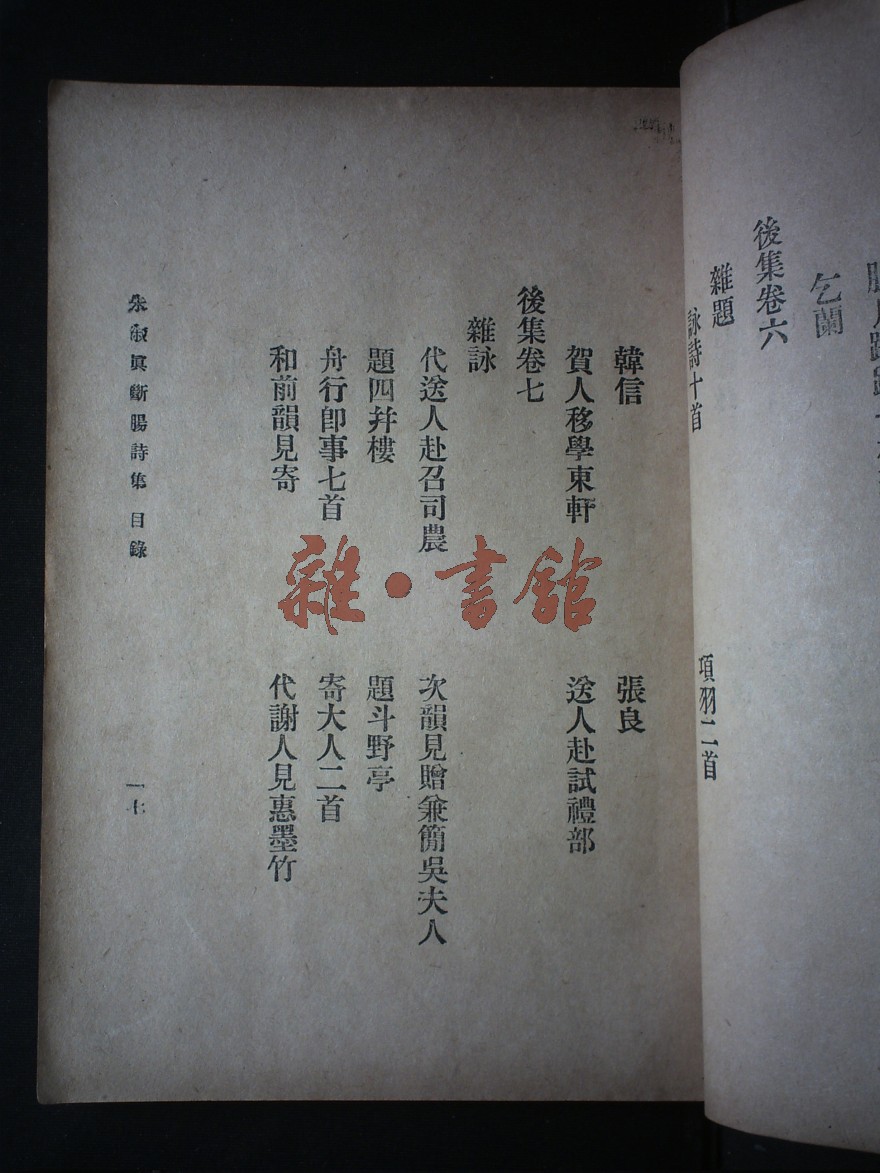 乞蘭
後集卷六
雜題
詠詩十首
項羽二首
韓信
張良
賀人移學東軒
送人赴試禮部
後集卷七
雜詠
代送人赴召司農
次韻見贈兼簡吳夫人
題四幷樓
題斗野亭
舟行卽事七首
寄大人二首
和前韻見寄
代謝人見惠墨竹
朱淑眞斷腸詩集 目錄
一七
雜·書館